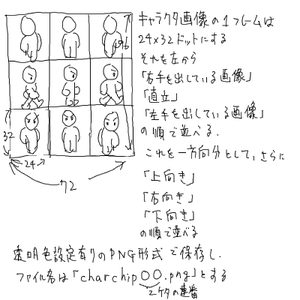 キャラクタ画像の1フレームは
24x32ドットにする
それを左から
「右手を出している画像」
「直立」
「左手を出している画像」
の順で並べる.
これを一方向分として,さらに
「上向き」
「右向き」
「下向き」
の順で並べる
透明色設定有りのPNG形式で保存し.
ファイル名は「charchip〇〇.png」とする
2ケタの連番
96
32
24
72